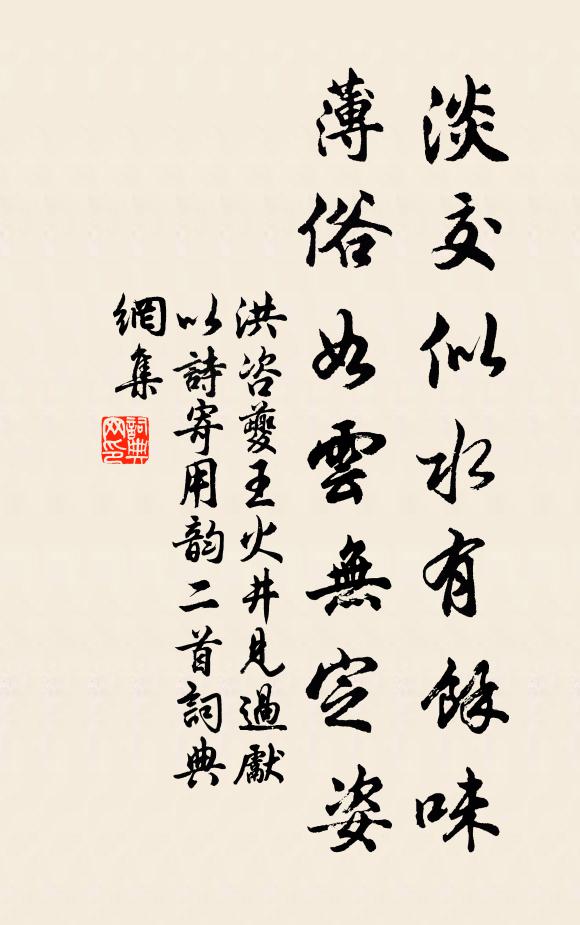 淡交似水有餘味
薄俗如雲無定姿
洪咨夔王火井見過獻
以詩寄用韵二首詞典
網集
詞典
网印